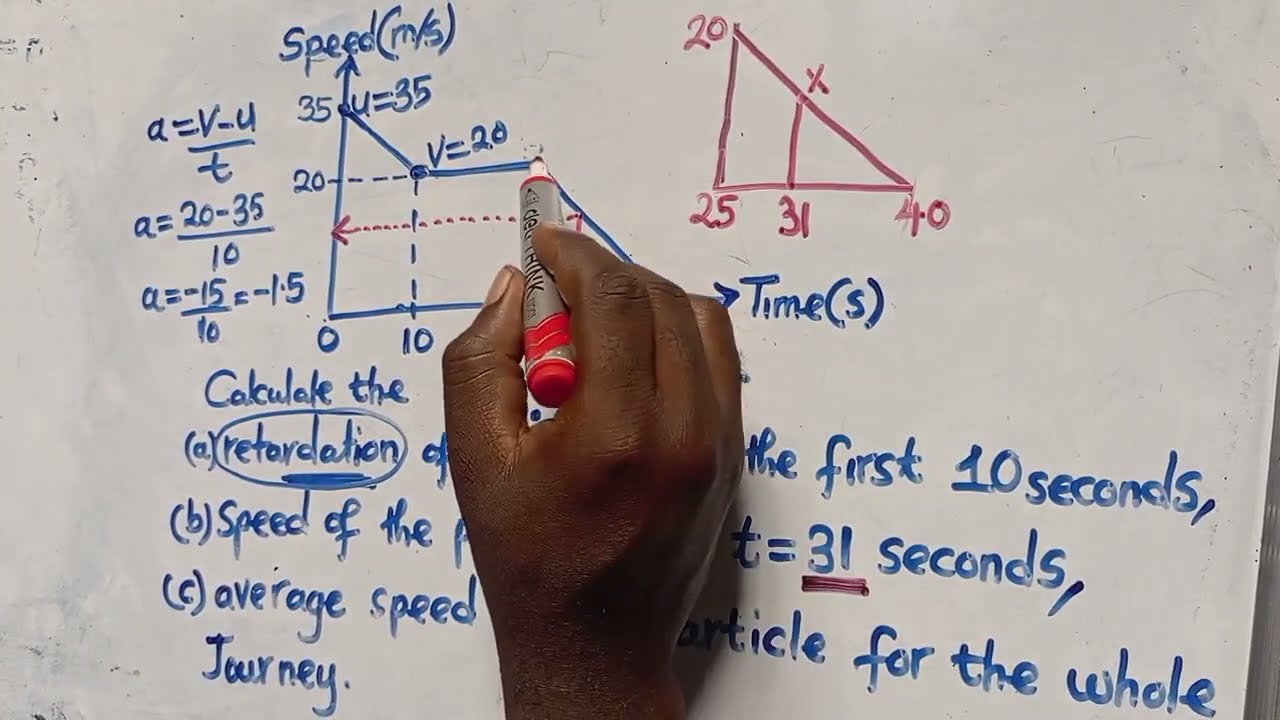 Speed(m/s)
35 u=35
a=V-u
t
V=20
20
a=20-35
10
a=-15=-1.5
10
0 10
Time(s)
20
x
25 31 40
Calculate the
(a)retardation of the first 10 seconds,
(b)Speed of the t=31 seconds,
(c)average speed article for the whole
Journey.
THINK